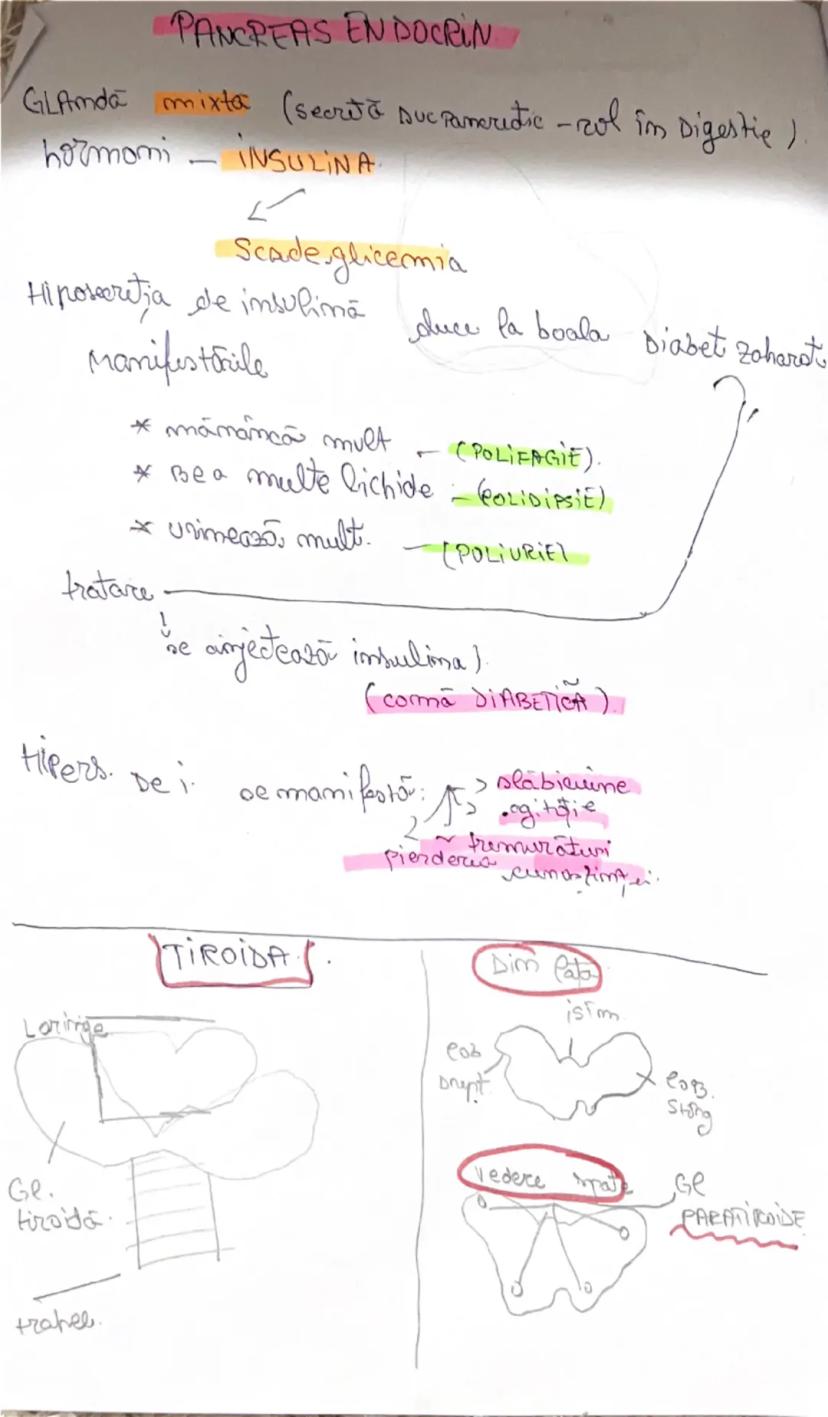 PANCREAS ENDOCRIN
GLAndā mixtā (secretā suc pancreatic - rol în Digestie).
hormoni - INSULINA
Scade glicemia
Hiposecreția de insulinā duce la boala Diabet zaharat
Manifestārile
* mānâncā mult - (POLIFAGIE).
* Bea multe lichide - (POLIDIPSIE)
* urineazā mult. - (POLIURIE)
tratare
se injecteazā insulina).
(comā DIABETICĂ).
Hipers. De i. se manifestā: slābiciune
agitație
tremurāturi
pierderea cunoștinței.
TIROIDA.
Din fața
Laringe
istm
lob drept.
lob. stâng
Vedere spate
Gl. tiroidā.
Gl PARATIROIDE
trahee.